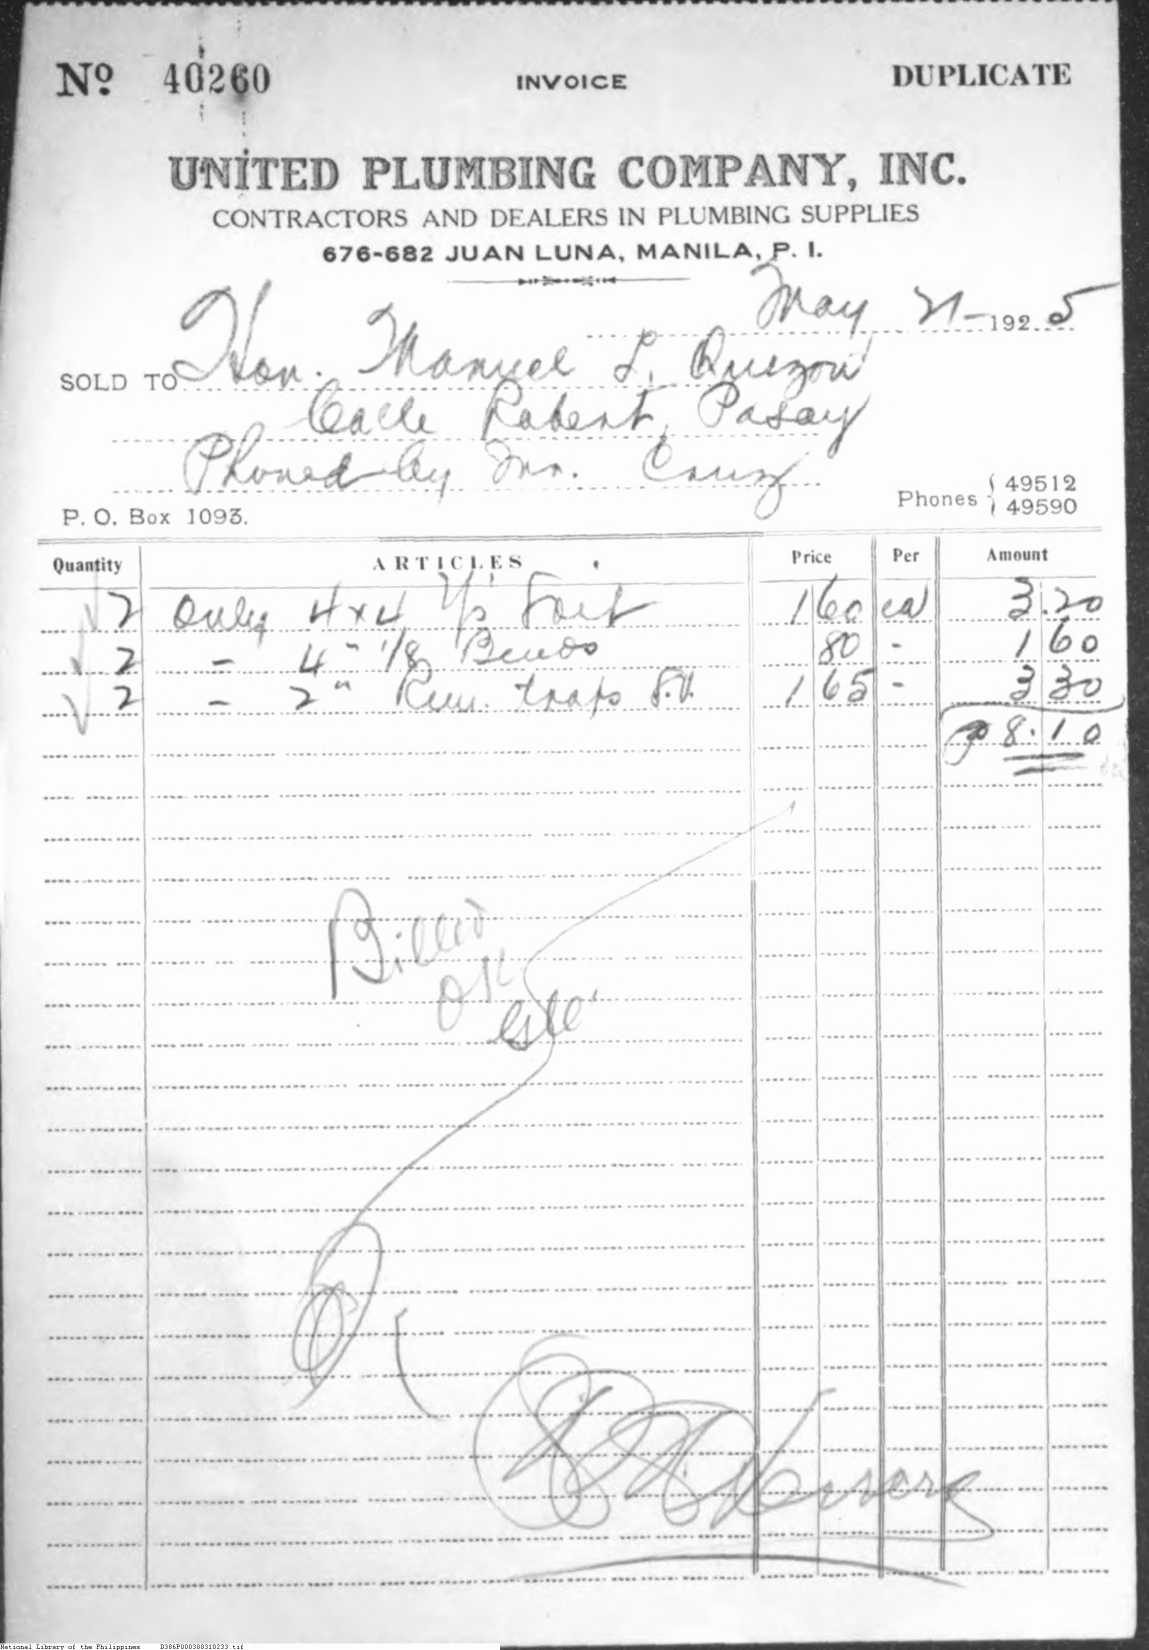 No 40260 INVOICE DUPLICATE
UNITED PLUMBING COMPANY, INC.
CONTRACTORS AND DEALERS IN PLUMBING SUPPLIES
676-682 JUAN LUNA, MANILA, P. I.
May 21-1925
SOLD TO Hon. Manuel L. Quezon
Calle Robert, Pasay
Phoned by Mr. Cruz
Phones 49512
49590
P. O. Box 1093.
Quantity ARTICLES Price Per Amount
2 Only 4x4 160 ea 3.20
2 - 4" 1/8 Bends 80 - 1 60
2 - 2" Run. traps S.V. 1 65 - 3 30
₱ 8.10
Billed
OK
National Library of the Philippines D386P000308310233.tif